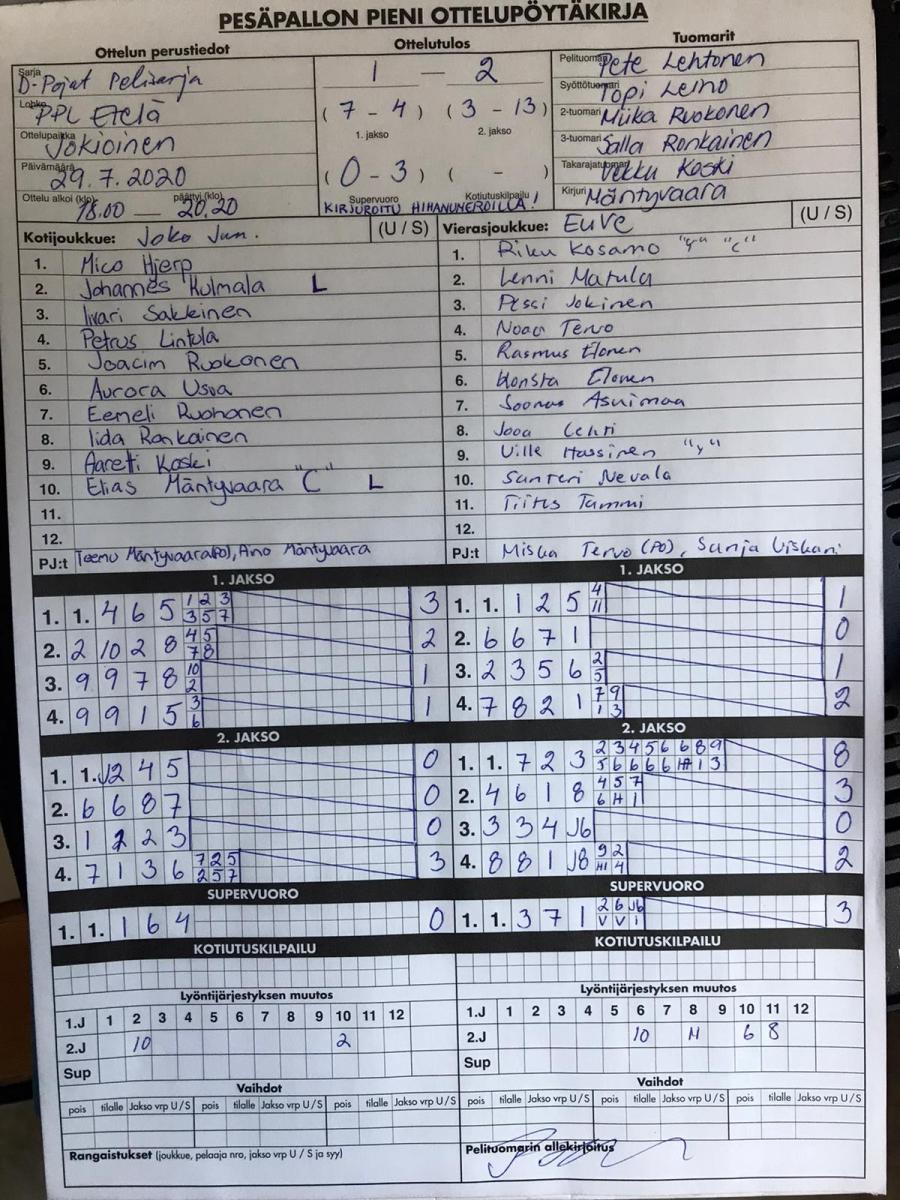 PESÄPALLON PIENI OTTELUPÖYTÄKIRJA
Ottelun perustiedot
Sarja D-Pojat Pelisarja
Lohko PPL Etelä
Ottelupaikka Jokioinen
Päivämäärä 29.7.2020
Ottelu alkoi (klo) 18.00 — päättyi (klo) 20.20
Ottelutulos
1 — 2
( 7 - 4 ) ( 3 - 13 )
1. jakso 2. jakso
( 0 - 3 ) ( - )
Supervuoro Kotiutuskilpailu
KIRJUROITU HIHANUMEROILLA!
Tuomarit
Pelituomari Pete Lehtonen
Syöttötuomari Topi Leino
2-tuomari Miika Ruokonen
3-tuomari Salla Ronkainen
Takarajatuomari Vekku Koski
Kirjuri Mäntyvaara
Kotijoukkue: Joko Jun. (U / S)
1. Mico Hjerp
2. Johannes Kulmala L
3. Iivari Sakkinen
4. Petrus Lintula
5. Joacim Ruokonen
6. Aurora Usva
7. Eemeli Ruohonen
8. Iida Ronkainen
9. Aareti Koski
10. Elias Mäntyvaara "C" L
11.
12.
PJ:t Teemu Mäntyvaara(PO), Aino Mäntyvaara
Vierasjoukkue: EuVe (U / S)
1. Riku Kosamo "C"
2. Lenni Matula
3. Pessi Jokinen
4. Nooa Tervo
5. Rasmus Elonen
6. Konsta Elonen
7. Joonas Asuimaa
8. Jooa Lehti
9. Ville Hassinen "y"
10. Santeri Nevala
11. Tiitus Tammi
12.
PJ:t Miska Tervo (PO), Sanja
1. JAKSO
1. 1. 4 6 5 1 2 3 3
3 5 7
2. 2 10 2 8 4 5 2
7 8
3. 9 9 7 8 10 1
2
4. 9 9 1 5 3 1
6
1. JAKSO
1. 1. 1 2 5 4 1
11
2. 6 6 7 1 0
3. 2 3 5 6 2 1
5
4. 7 8 2 1 7 9 2
1 3
2. JAKSO
1. 1. J2 4 5 0
2. 6 6 8 7 0
3. 1 2 2 3 0
4. 7 1 3 6 7 2 5 3
2 5 7
2. JAKSO
1. 1. 7 2 3 2 3 4 5 6 6 8 9 8
5 6 6 6 6 1 3
2. 4 6 1 8 4 5 7 3
6 H 1
3. 3 3 4 J6 0
4. 8 8 1 J8 9 2 2
4
SUPERVUORO
1. 1. 1 6 4 0
SUPERVUORO
1. 1. 3 7 1 2 6 J6 3
V V 1
KOTIUTUSKILPAILU
KOTIUTUSKILPAILU
Lyöntijärjestyksen muutos
1.J 1 2 3 4 5 6 7 8 9 10 11 12
2.J 10 2
Sup
Lyöntijärjestyksen muutos
1.J 1 2 3 4 5 6 7 8 9 10 11 12
2.J 10 11 6 8
Sup
Vaihdot
pois tilalle Jakso vrp U / S pois tilalle Jakso vrp U / S pois tilalle Jakso vrp U / S
Vaihdot
pois tilalle Jakso vrp U / S pois tilalle Jakso vrp U / S pois tilalle Jakso vrp U / S
Rangaistukset (joukkue, pelaaja nro, jakso vrp U / S ja syy)
Pelituomarin allekirjoitus